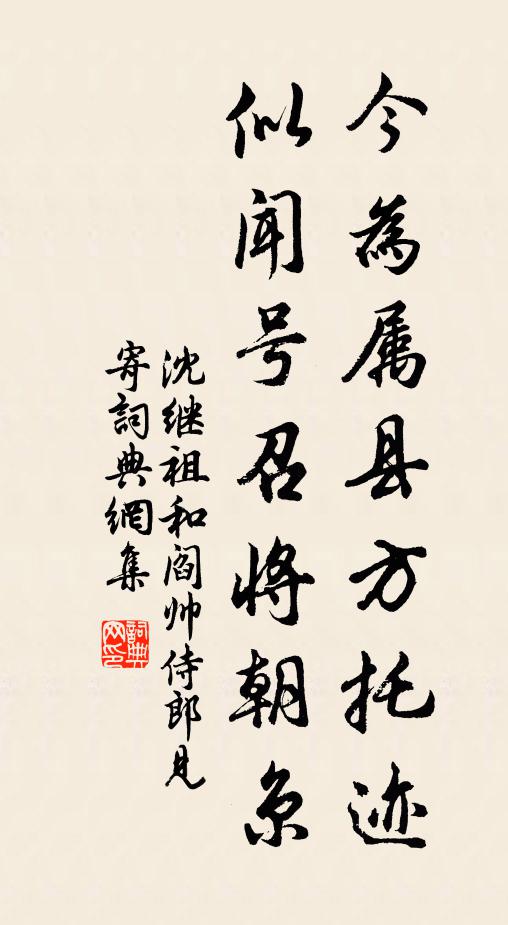 今為属县方托迹
似闻号召将朝京
沈继祖和阎帅侍郎见
寄詞典網集
詞典网印